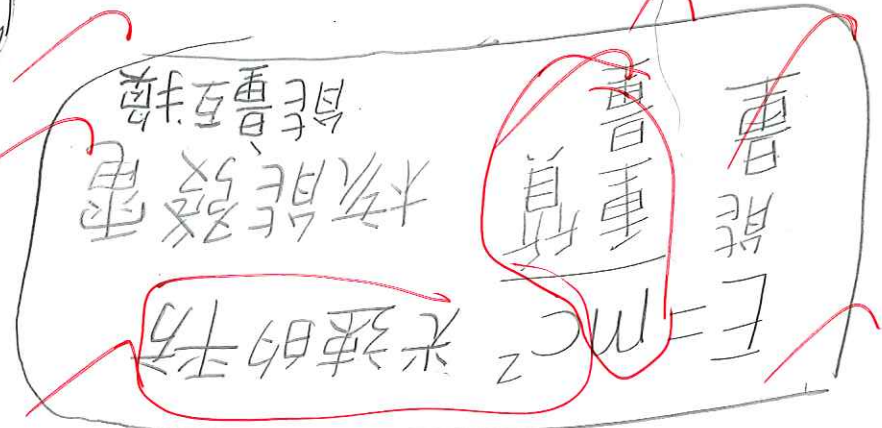 E=mc² 光速的平方
能量
重量
質
核能發電
能量互換